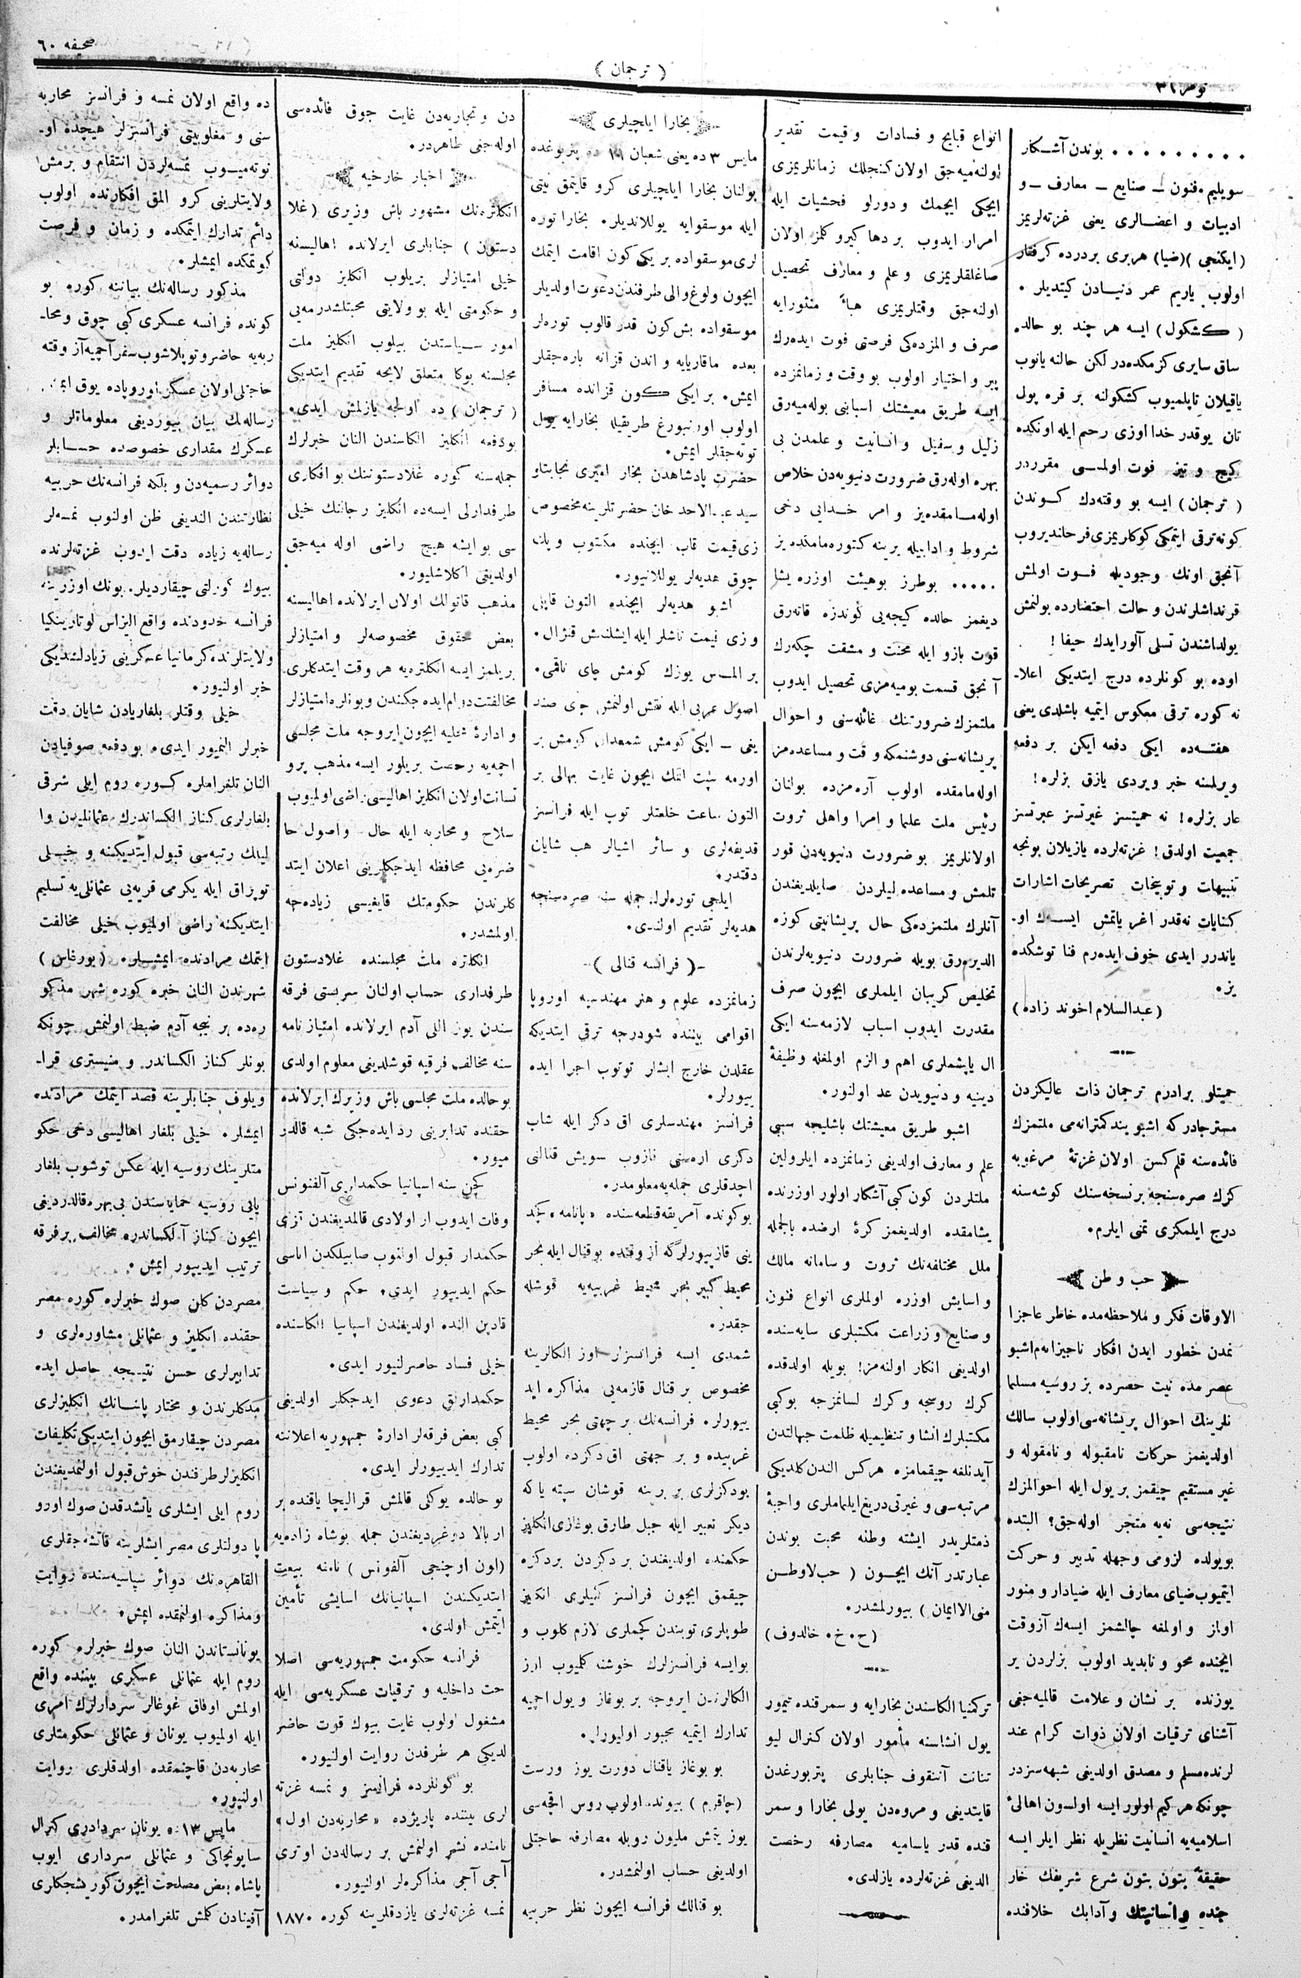 صحیفه ٦٠
( ترجمان )
نومر ٣١
. . . . . . . . . بوندن آشکار
سویلیم. فنون ــ صنایع ــ معارف ــ و
ادبیات و اعضالری یعنی غزته‌لریمز
(ایکنجی )(ضیا) هربری بردرده کرفتار
اولوب یاریم عمر دنیادن کیتدیلر .
( کشکول) ایسه هر چند بو حالده
ساق سایری کزمکده‌در لکن حالنه یانوب
یاقیلان تاپلمیوب کشکولنه بر قره پول
تان یوقدر خدا اوزی رحم ایله اونکده
کیچ و تیز فوت اولمسی مقرردر
( ترجمان) ایسه بو وقته‌دك کوندن
کونه ترقی ایتمکی کوکلریمزی فرحلندیروب
آنجق اونك وجودیله فوت اولمش
قرنداشلرندن و حالت احتضارده بولنمش
یولداشندن تسلی آلورایدك حیفا !
اوده بو کونلرده درج ایتدیکی اعلا۔
نه کوره ترقی معکوس ایتمیه باشلدی یعنی
هفته‌ده ایکی دفعه ایکن بر دفعه
ویرلمسنه خبر ویردی یازق بزلره!
عار بزلره! نه حمیتسز غیرتسز عبرتسز
جمعیت اولدق! غزته‌لرده یازیلان بونجه
تنبیهات و توبیخات تصریحات اشارات
کنایات نه‌قدر اغر یاتمش ایسه‌ك او۔
یاندرر ایدی خوف ایده‌رم فنا توشکده
یز.
(عبدالسلام اخوند زاده)
حمیتلو برادرم ترجمان ذات عالیکزدن
مسترجادرکه اشبو بندکمترانه‌می ملتمزك
فائده‌سنه قلم کسن اولان غزتهٔ مرغوبه
کزك صره‌سنجه برنسخه‌سنك کوشه‌سنه
درج ایلمکزی تمنی ایلرم.
حب وطن
الاوقات فکر و ملاحظه‌مده خاطر عاجزا
نمدن خطور ایدن افکار ناچیزانه‌م اشبو
عصرمده نیت حصرده بز روسیه مسلما
نلرینك احوال پریشانه‌سی اولوب سالك
اولدیغمز حرکات نامقبوله و نامقوله و
غیر مستقیم چیقمز بر یول ایله احوالمزك
نتیجه‌سی نه‌یه منجر اوله‌جق؟ البته
بو یولده لزومی وجهله تدبیر و حرکت
ایتمیوب ضیای معارف ایله ضیادار و منور
اولمز و اولمغه چالشمز ایسه‌ك آزوقت
ایچنده محو و نابدید اولوب بزلردن یر
یوزنده بر نشان و علامت قالمیه‌جغی
آشنای ترقیات اولان ذوات کرام عند
لرنده مسلم و مصدق اولدیغی شبهه‌سزدر
چونکه هر کیم اولور ایسه اولسون اهالئ
اسلامیه‌یه انسانیت نظریله نظر ایلر ایسه
حقیقةً بتون بتون شرع شریفك خار
جنده و انسانیتك و آدابك خلافنده
انواع قبایح و فسادات و قیمت تقدیر
اولنه‌میه‌جق اولان کنجلك زمانلریمزی
ایچکی ایچمك و دورلو فحشیات ایله
امرار ایدوب بر دها کیرو کلمز اولان
صاغلقلریمزی و علم و معارف تحصیل
اولنه‌جق وقتلریمزی هباءً منثورایه
صرف و المزده‌کی فرصتی فوت ایده‌رك
پیر و اختیار اولوب بو وقت و زمانمزده
ایسه طریق معیشتك اسبابنی بوله‌میه‌رق
زلیل و سفیل و انسانیت و علمدن بی
بهره اوله‌رق ضرورت دنیویه‌دن خلاص
اوله‌مامقده‌یز و امر خدایی دخی
شروط و ادابیله یرینه کتوره‌مامقده‌یز
. . . . . بوطرز بوهیئت اوزره یشا
دیغمز حالده کیجه‌یی کوندزه قاته‌رق
قوت بازو ایله محنت و مشقت چکه‌رك
آنجق قسمت یومیه‌مزی تحصیل ایدوب
ملتمزك ضرورتنك غائله‌سنی و احوال
پریشانه‌سنی دوشنمکه وقت و مساعده‌مز
اوله‌مامقده اولوب آره‌مزده بولنان
رئیس ملت علما و امرا و اهلی ثروت
اولانلریمز بو ضرورت دنیویه‌دن قور
تلمش و مساعده‌لیلردن صایلدیغندن
آنلرك ملتمزده‌کی حال پریشانیتی کوزه
الدیره‌رق بویله ضرورت دنیویه‌لرندن
تخلیص کریبان ایلملری ایچون صرف
مقدرت ایدوب اسباب لازمه‌سنه ایکی
ال یاپشملری اهم و الزم اولمغله وظیفهٔ
دینیه و دنیویدن عد اولنور.
اشبو طریق معیشتك باشلیجه سببی
علم و معارف اولدیغی زمانمزده ایلرولین
ملتلردن کون کبی آشکار اولور اوزرنده
یشامقده اولدیغمز کرهٔ ارضده بالجمله
ملل مختلفه‌نك ثروت و سامانه مالك
و اسایش اوزره اولملری انواع فنون
و صنایع و زراعت مکتبلری سایه‌سنده
اولدیغی انکار اولنه‌مز! بویله اولدقده
کرك روسجه و کرك لسانمزجه بوکبی
مکتبلرك انشا و تنظیمیله ظلمت جهالتدن
آیدنلغه چیقمامزه هرکس الندن کلدیکی
مرتبه سعی و غیرتی دریغ ایلماملری واجبهٔ
ذمتلریدر ایشته وطنه محبت بوندن
عبارتدر آنك ایچون ( حب لاوطن
منی الاایمان ) بیورلمشدر.
(ح. خ. خالدوف)
ترکمنیا الکاسندن بخارایه و سمرقنده تیمور
یول انشاسنه مأمور اولان کنرال لیو
تنانت آننقوف جنابلری پتربورغدن
قایتدیغی و مروه‌دن یولی بخارا و سمر
قنده قدر یاسامیه مصارفه رخصت
الدیغی غزته‌لرده یازلدی.
بخارا ایلچیلری
مایس ٣ ده یعنی شعبان ١١ ده پتربوغده
بولنان بخارا ایلچیلری کرو قایتمق نیتی
ایله موسقوایه یوللاندیلر. بخارا توره
لری موسقواده بر یکی کون اقامت ایتمك
ایچون ولوغ والی طرفندن دعوت اولدیلر
موسقواده بش کون قدر قالوب توره‌لر
بعده ماقاریایه و اندن قزانه باره‌جقلر
ایمش. بر ایکی کون قزانده مسافر
اولوب اورنبورغ طریقیله بخارایه یول
توته‌جقلر ایمش.
حضرت پادشاهدن بخار امیری نجابتلو
سید عبدالاحد خان حضرتلرینه مخصوص
زی‌قیمت قاب ایچنده مکتوب و پك
چوق هدیه‌لر یوللانیور.
اشبو هدیه‌لر ایچنده التون قابلی
و زی قیمت تاشلر ایله ایشلنمش قنژال.
بر الماس یوزك کومش چای ناقمی.
اصول عربی ایله نقش اولنمش جی صند
یغی ــ ایکی کومش شمعدان کومش بر
اورمه سپت اتمك ایچون غایت بهالی بر
التون ساعت خلعتلر توپ ایله فرانسز
قدیفه‌لری و سائر اشیالر هب شایان
دقتدر.
ایلچی توره‌لرله جمله سنه صره‌سنجه
هدیه‌لر تقدیم اولندی.
ـ( فرانسه قنالی )ـ
زمانمزده علوم و هنر مهندسیه اوروپا
اقوامی یاننده شودرجه ترقی ایتدیکه
عقلدن خارج ایشلر توتوب اجرا ایده
بیورلر.
فرانسز مهندسلری اق دکز ایله شاپ
دکزی اره‌سنی قازوب سویش قنالنی
اچدقلری جمله‌یه معلومدر.
بوکونده آمریقه قطعه‌سنده «پانامه» جکد
ینی قازییورلرکه از وقتده بوقنال ایله بحر
محیط کبیر بحر محیط غربیه‌یه قوشله
جقدر.
شمدی ایسه فرانسزلر اوز الکالرینه
مخصوص بر قنال قازمه‌یی مذاکره اید
ییورلر. فرانسه‌نك بر جهتی بحر محیط
غربیده و بر جهتی اق دکزده اولوب
بودکزلری بر برینه قوشان سپته یاکه
دیگر تعبیر ایله جبل طارق بوغازی انکلیز
حکمنده اولدیغندن بر دکزدن بردکزه
چیقمق ایچون فرانسز کمیلری انکلیز
طوپلری توبندن کچملری لازم کلوب و
بوایسه فرانسزلرك خوشنه کلمیوب اوز
الکالرندن ایروجه بر بوغاز و یول اچمیه
تدارك ایتمیه مجبور اولیورلر.
بو بوغاز یاقنال دورت یوز ورست
(چاقرم) بیونده اولوب روس اقچه‌سی
یوز یتمش ملیون روبله مصارفه حاجتلی
اولدیغی حساب اولنمشدر.
بو قنالك فرانسه ایچون نظر حربیه
دن و تجاریه‌دن غایت جوق فائده‌سی
اوله‌جغی ظاهردر.
اخبار خارجیه
انکلتره‌نك مشهور باش وزیری (غلا
دستون ) جنابلری ایرلانده اهالیسنه
خیلی امتیازلر بریلوب انکلیز دولتی
و حکومتی ایله بو ولایتی محبتلشدرمه‌یی
امور سیاستدن بیلوب انکلیز ملت
مجلسنه بوکا متعلق لایحه تقدیم ایتدیکی
( ترجمان ) ده اولجه یازلمش ایدی.
بودفعه انکلیز الکاسندن النان خبرلرك
جمله‌سنه کوره غلادستوننك بو افکاری
طرفدارلی ایسه‌ده انکلیز رجالنك خیلی
سی بو ایشه هیچ راضی اوله میه‌جق
اولدیغی اکلاشلیور.
مذهب قاتولك اولان ایرلانده اهالیسنه
بعض حقوق مخصوصه‌لر و امتیازلر
بریلمز ایسه انکلتره‌یه هر وقت ایتدکلری
مخالفتت دوام ایده جکندن و بونلره امتیازلر
و ادارهٔ نقلیه ایچون ایروجه ملت مجلسی
اچمه‌یه رخصت بریلور ایسه مذهب پرو
تسانت اولان انکلیز اهالیسی راضی اولمیوب
سلاح و محاربه ایله حال و اصول حا
ضره‌یی محافظه ایدجکلرینی اعلان ایتد
کلرندن حکومتك قایغیسی زیاده‌جه
اولمشدر.
انکلتره ملت مجلسنده غلادستون
طرفداری حساب اولنان سربستی فرقه
سندن یوز اللی آدم ایرلانده امتیازنامه
سنه مخالف فرقیه قوشلدیغی معلوم اولدی
بوحالده ملت مجلسی باش وزیرك ایرلانده
حقنده تدابرینی رد ایده‌جکی شبه قالدر
میور.
کچن سنه اسپانیا حکمداری آلفونس
وفات ایدوب ار اولادی قالمدیغندن تززی
حکمدار قبول اولنوب صابیلکدن اناسی
حکم ایدیپور ایدی. حکم و سیاست
قادین النده اولدیغندن اسپانیا الکاسنده
خیلی فساد حاصرلنیور ایدی.
حکمدارلق دعوی ایدجکلر اولدیغی
کبی بعض فرقه‌لر ادارهٔ جمهوریه اعلاننه
تدارك ایدییورلر ایدی.
بوحالده یوکلی قالمش قرالیچا یاقنده بر
ار بالا دوغردیغندن جمله بوشاه زاده‌یه
(اون اوچنجی آلفونس ) نامنه بیعت
ایتدیکندن اسپانیانك اسایشی تأمین
ایتمش اولدی.
فرانسه حکومت جمهوریه‌سی اصلا
حات داخلیه و ترقیات عسکریه‌سی ایله
مشغول اولوب غایت بیوك قوت حاضر
لدیکی هر طرفدن روایت اولنیور.
بو کونلرده فرانسز و نمسه غزته
لری بیننده پاریژده «محاربه‌دن اول»
نامنده نشر اولنمش بر رساله‌دن اوتری
آجی آجی مذاکره‌لر اولنیور.
نمسه غزته‌لری یازدقلرینه کوره ١٨٧٠
ده واقع اولان نمسه و فرانسز محاربه
سنی و مغلوبیتی فرانسزلر هیچده او۔
نوته‌میوب نمسه‌لردن انتقام و برمش
ولایتلرینی کرو المق افکارنده اولوب
دائم تدارك ایتمکده و زمان و فرصت
کوتمکده ایمشلر.
مذکور رساله‌نك بیاننه کوره بو
کونده فرانسه عسکری کبی چوق و محا۔
ربه‌یه حاضر و توپلاشوب سفر آچمیه آز وقته
حاجتلی اولان عسکر اوروپاده یوق ایمش
رساله‌نك بیان بیوردیغی معلوماتلر و
عسکرك مقداری خصوصده حسابلر
دوائر رسمیه‌دن و بلکه فرانسه‌نك حربیه
نظارتندن الندیغی ظن اولنوب نمسه‌لر
رساله‌یه زیاده دقت ایدوب غزته‌لرنده
بیوك کورلتی چیقاردیلر. بونك اوزرینه
فرانسه حدودنده واقع الزاس لوتارینکیا
ولایتلرنده کرمانیا عسکرینی زیادلشدیکی
خبر اولنیور.
خیلی وقتلر بلغاریادن شایان دقت
خبرلر النمیور ایدی. بودفعه صوفیادن
النان تلغرافلره کوره روم ایلی شرقی
بلغارلری کناز الکساندرك عثمانلیدن وا
لیلك رتبه‌سی قبول ایتدیکنه و خیلی
توپراق ایله یکرمی قریه‌یی عثمانلی‌یه تسلیم
ایتدیکنه راضی اولمیوب خیلی مخالفت
ایتمك مرادنده ایمشلر. ( بورغاس )
شهرندن النان خبره کوره شهر مذکو
ره‌ده بر نیجه آدم ضبط اولنمش چونکه
بونلر کناز الکساندر و منیستری قرا۔
ویلوف جنابلرینه قصد ایتمك مرادنده
ایمشلر. خیلی بلغار اهالیسی دخی حکو
متلرینك روسیه ایله عکس توشوب بلغار
یایی روسیه حمایاسندن بی بهره قالدردیغی
ایچون کناز آلکساندره مخالف بر فرقه
ترتیب ایدیپور ایمش.
مصردن کلن صوك خبرلره کوره مصر
حقنده انکلیز و عثمانلی مشاوره‌لری و
تدابیرلری حسن نتیجه حاصل ایده
مدکلرندن و مختار پاشانك انکلیزلری
مصردن چیقارمق ایچون ایتدیکی تکلیفات
انکلیزلر طرفندن خوش قبول اولنمدیغندن
روم ایلی ایشلری یاتشدقدن صوك اورو
پا دولتلری مصر ایشلرینه قاتشه‌جقلری
القاهره‌نك دوائر سیاسیه‌سنده روایت
و مذاکره اولنمقده ایمش.
یونانستاندن النان صوك خبرلره کوره
روم ایله عثمانلی عسکری بیننده واقع
اولمش اوفاق غوغالر سردارلرك امری
ایله اولمیوب یونان و عثمانلی حکومتلری
محاربه‌دن قاچنمقده اولدقلری روایت
اولنیور.
مایس ١٣ ده یونان سرداری کنرال
ساپونجاکی و عثمانلی سرداری ایوب
پاشاه بعض مصلحت ایچون کوریشجکلری
آفینادن کلمش تلغرامدر.